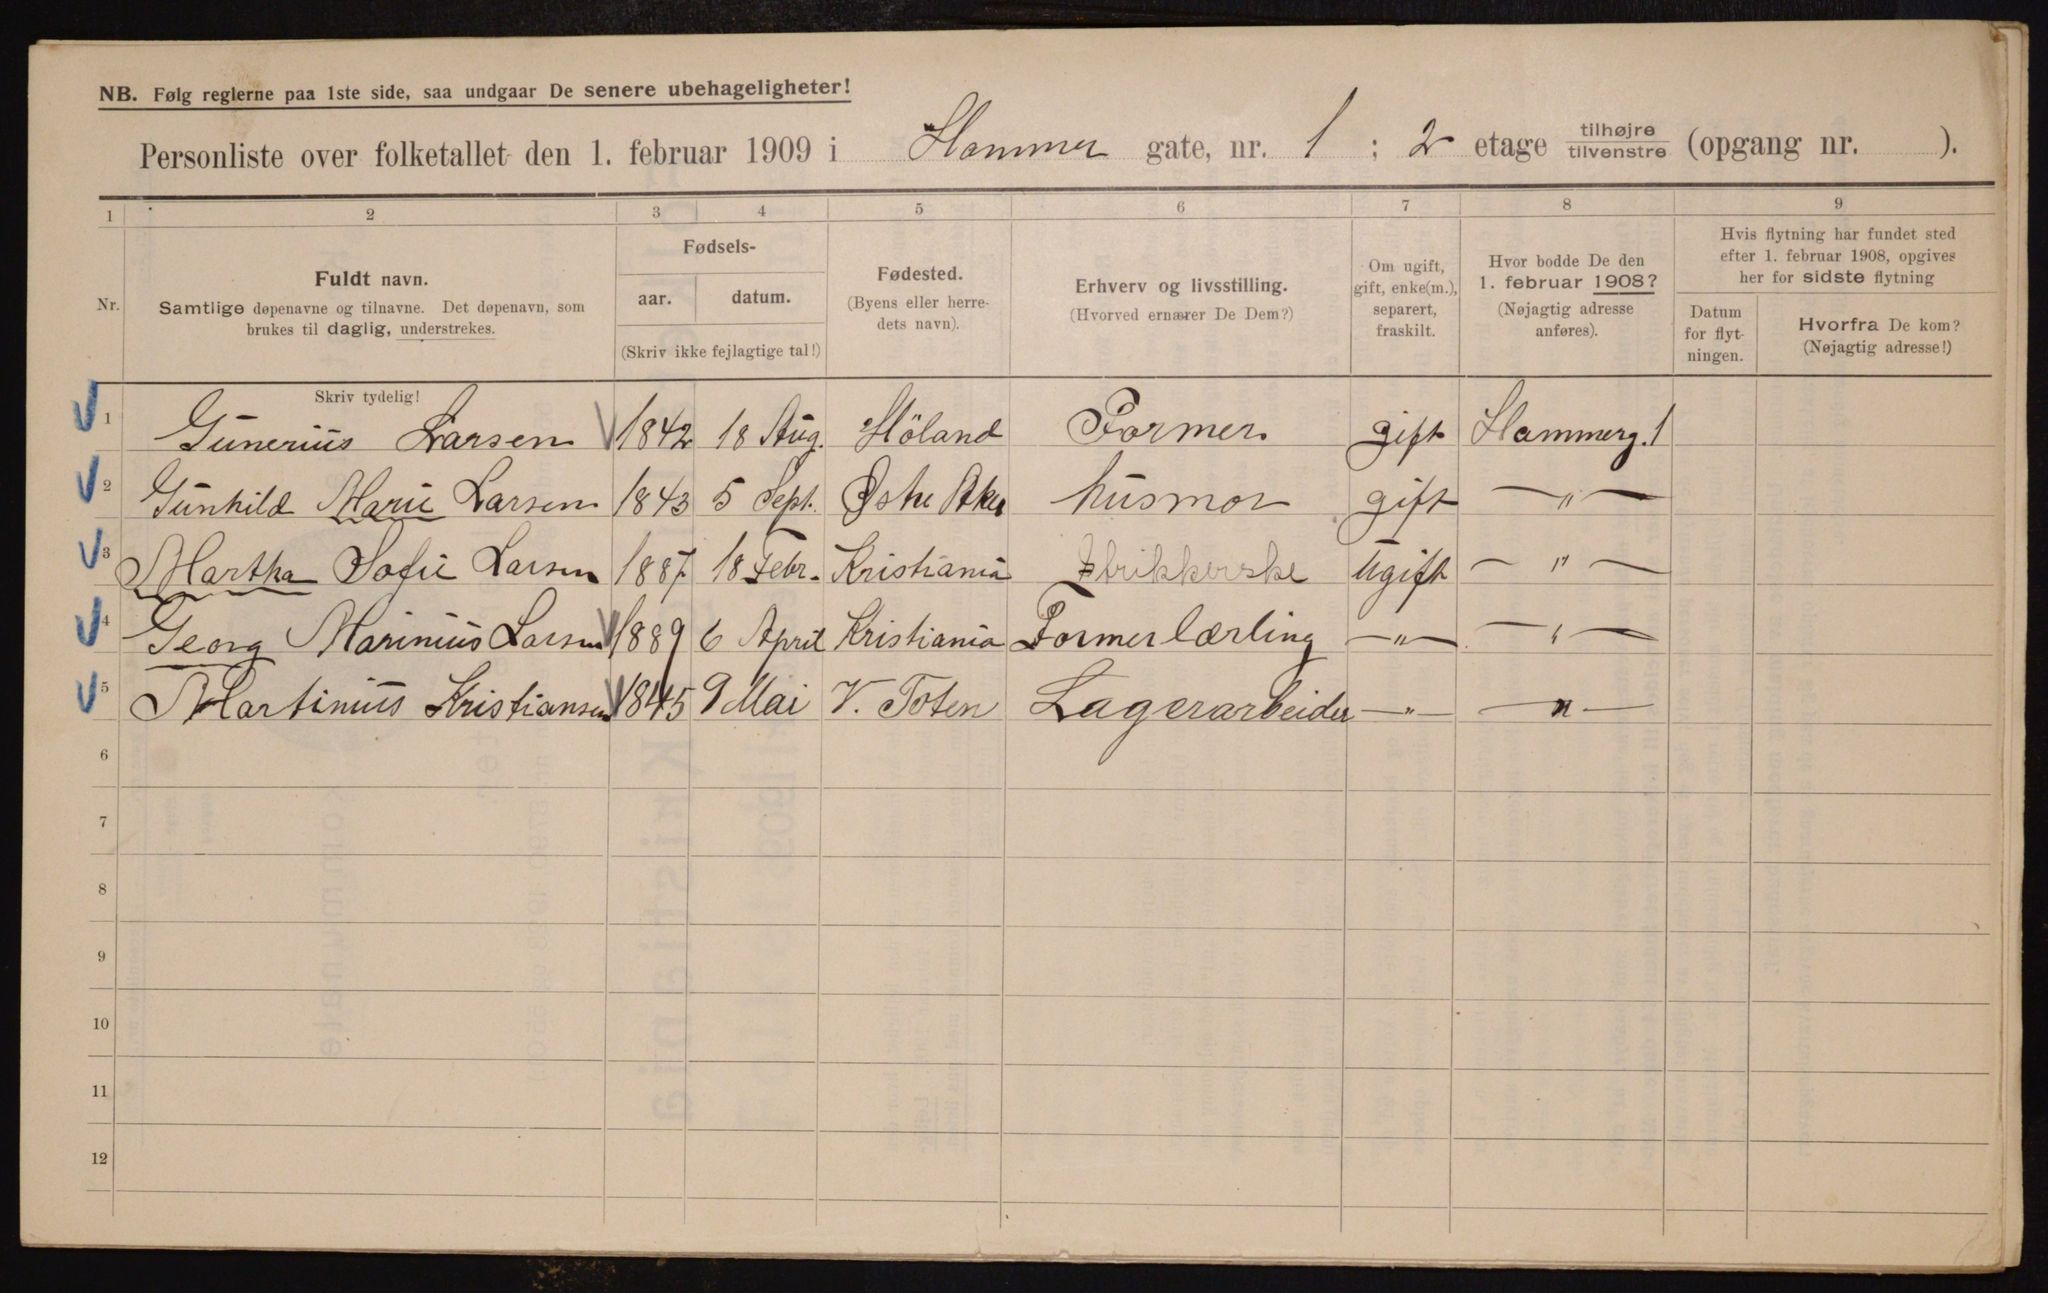 NB. Følg reglerne paa 1ste side, saa undgaar De senere ubehageligheter!
Personliste over folketallet den 1. februar 1909 i Hammer gate, nr. 1 ; 2 etage tilhøjre tilvenstre (opgang nr. ).
1 2 3 4 5 6 7 8 9
Nr.
Fuldt navn.
Samtlige døpenavne og tilnavne. Det døpenavn, som
brukes til daglig, understrekes.
Fødsels-
aar. datum.
(Skriv ikke fejlagtige tal!)
Fødested.
(Byens eller herre-
dets navn).
Erhverv og livsstilling.
(Hvorved ernærer De Dem?)
Om ugift,
gift, enke(m.),
separert,
fraskilt.
Hvor bodde De den
1. februar 1908?
(Nøjagtig adresse
anføres).
Hvis flytning har fundet sted
efter 1. februar 1908, opgives
her for sidste flytning
Datum
for flyt-
ningen.
Hvorfra De kom?
(Nøjagtig adresse!)
Skriv tydelig!
1 Gunerius Larsen 1842 18 Aug. Höland Former gift Hammerg. 1
2 Gunhild Marie Larsen 1843 5 Sept. Østre Aker husmor gift —"—
3 Martha Sofie Larsen 1887 18 Febr. Kristiania Strikkerske Ugift —"—
4 Georg Marinius Larsen 1889 6 April Kristiania Formerlærling —"— —"—
5 Martinius Kristiansen 1845 9 Mai V. Toten Lagerarbeider —"— —"—
6
7
8
9
10
11
12